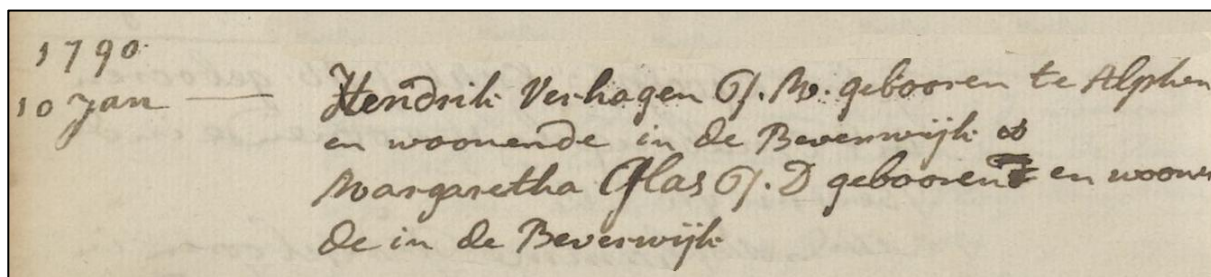 1790.
10 Jan — Hendrik Verhagen J.M. gebooren te Alphen
en woonende in de Beverwijk &
Margaretha Glas J.D gebooren en woonen
de in de Beverwijk